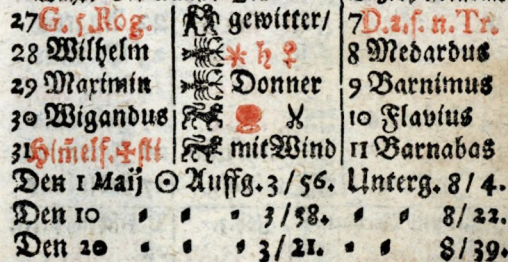 27 G. 5. Rog. gewitter/ 7 D. 2. f. n. Tr.
28 Wilhelm * ♄ ♀ 8 Medardus
29 Maximin Donner 9 Barnimus
30 Wigandus 10 Flavius
31 Him̃elf. ✠sti mit Wind 11 Barnabas
Den 1 Maij ☉ Auffg. 3/56. Unterg. 8/4.
Den 10 " " " 3/58. " " 8/22.
Den 20 " " " 3/21. " " 8/39.